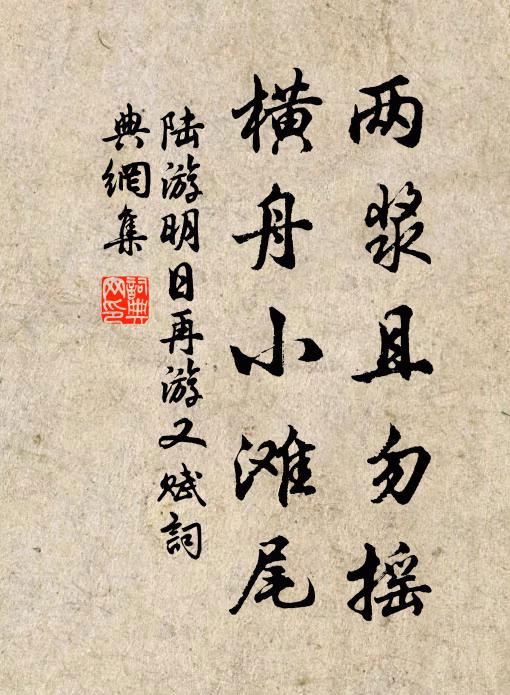 两桨且勿摇
横舟小滩尾
陆游明日再游又赋詞
典網集
詞典
网印